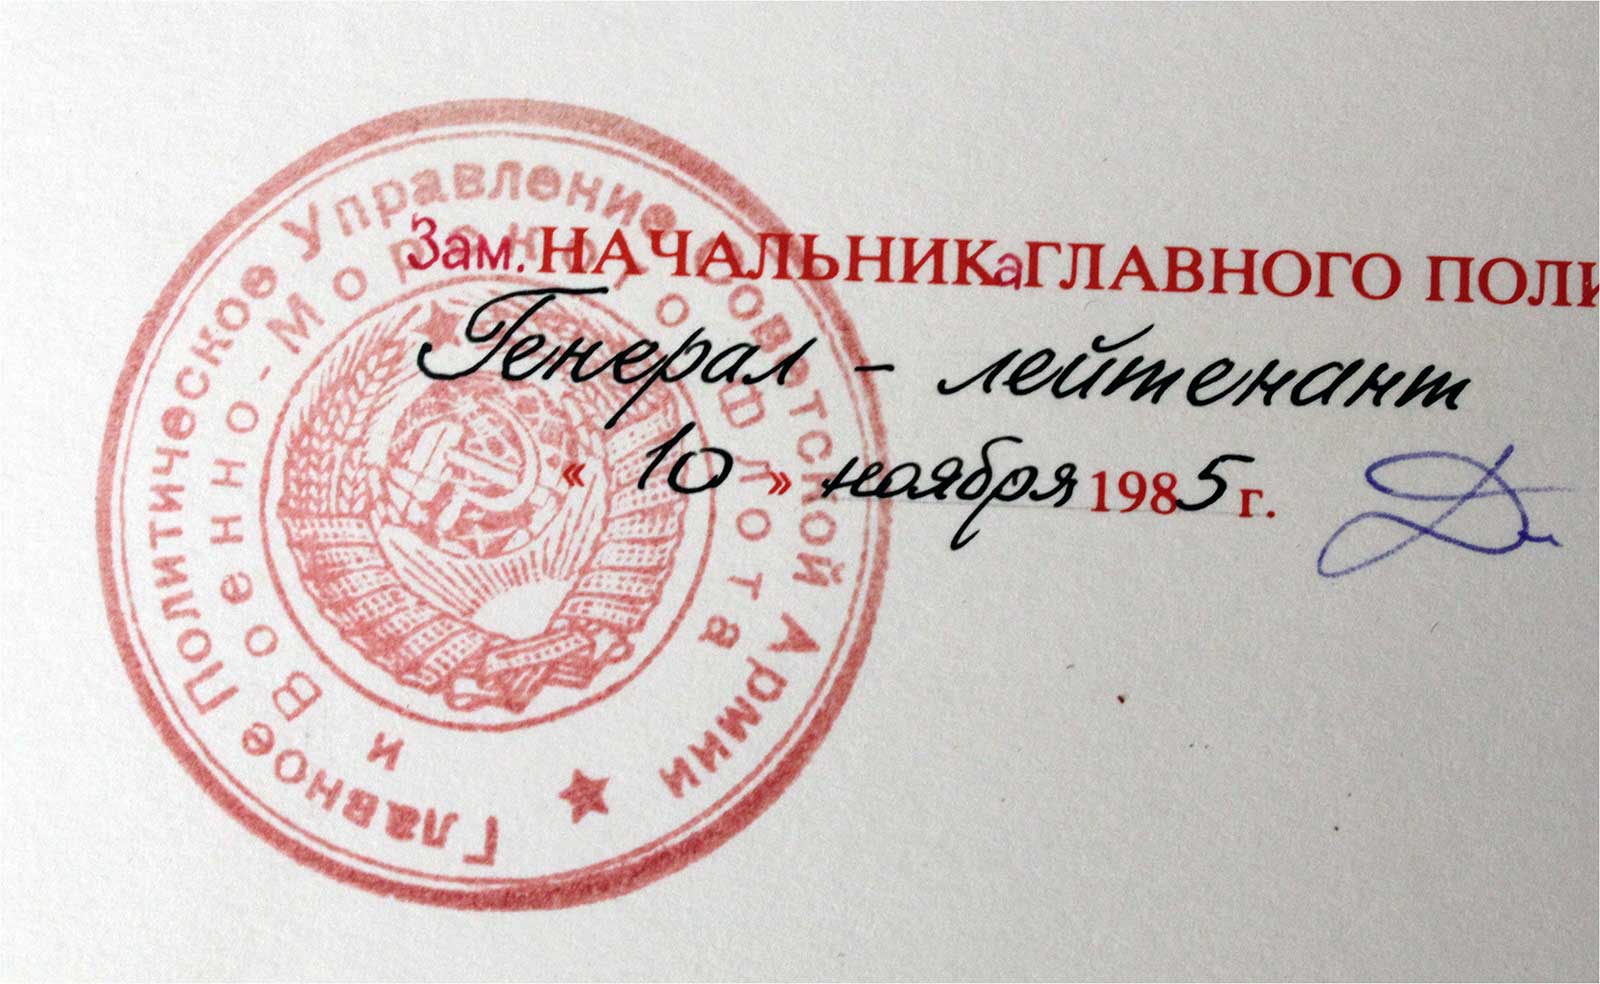 Главное Политическое Управление Советской Армии
и Военно-Морского Флота
Зам. НАЧАЛЬНИКа ГЛАВНОГО ПОЛИ
Генерал - лейтенант
« 10 » ноября 1985 г.